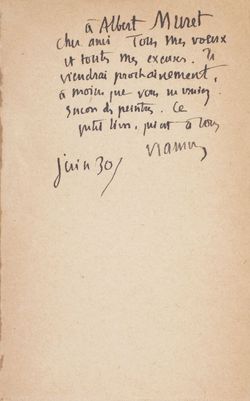 à Albert Muret
cher ami Tous mes voeux
et toutes mes excuses. Je
viendrai prochainement,
à moins que vous ne
encore des peintres. Ce
petit livre, à vous
Ramuz
juin 30/